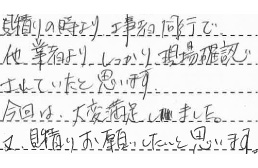 見積りの時より工事者同行で、
他業者より しっかり現場確認
されていたと思います。
今回は、大変満足しました。
又、見積りお願いしたいと思います。